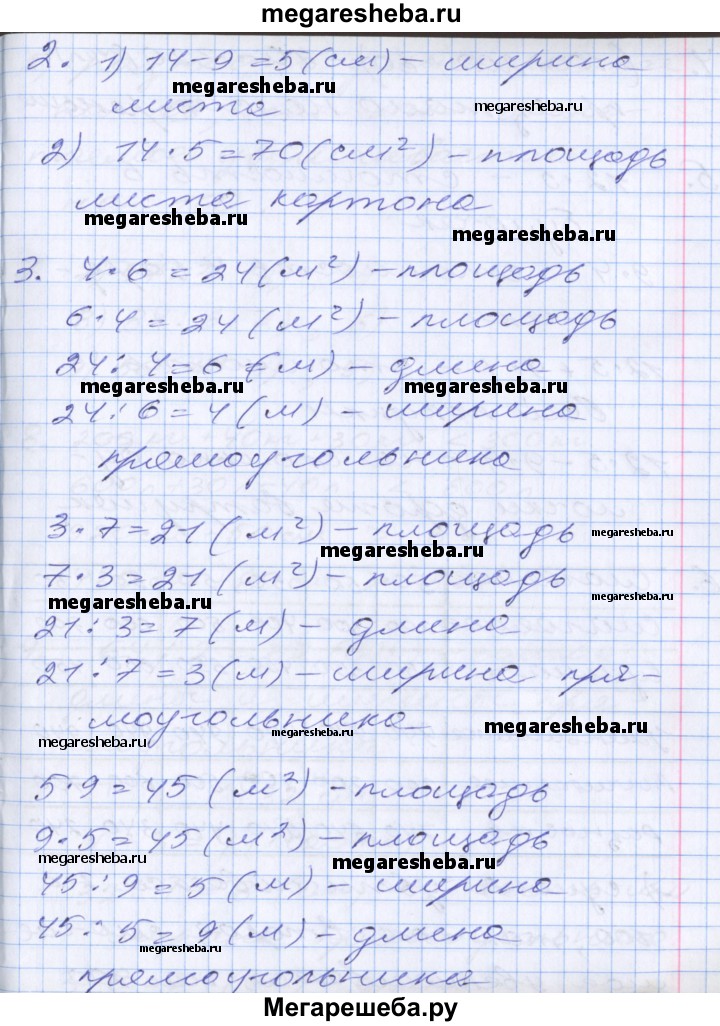 megaresheba.ru
2. 1) 14-9=5(см) - ширина
megaresheba.ru
megaresheba.ru
листа
2) 14·5=70(см²) - площадь
листа картона
megaresheba.ru
megaresheba.ru
3. 4·6=24(м²) - площадь
6·4=24(м²) - площадь
24:4=6(м) - длина
megaresheba.ru
megaresheba.ru
24:6=4(м) - ширина
прямоугольника
3·7=21(м²) - площадь
megaresheba.ru
megaresheba.ru
7·3=21(м²) - площадь
megaresheba.ru
megaresheba.ru
21:3=7(м) - длина
21:7=3(м) - ширина пря-
моугольника
megaresheba.ru
megaresheba.ru
megaresheba.ru
5·9=45(м²) - площадь
9·5=45(м²) - площадь
megaresheba.ru
megaresheba.ru
45:9=5(м) - ширина
45:5=9(м) - длина
megaresheba.ru
megaresheba.ru
прямоугольника.
Мегарешеба.ру